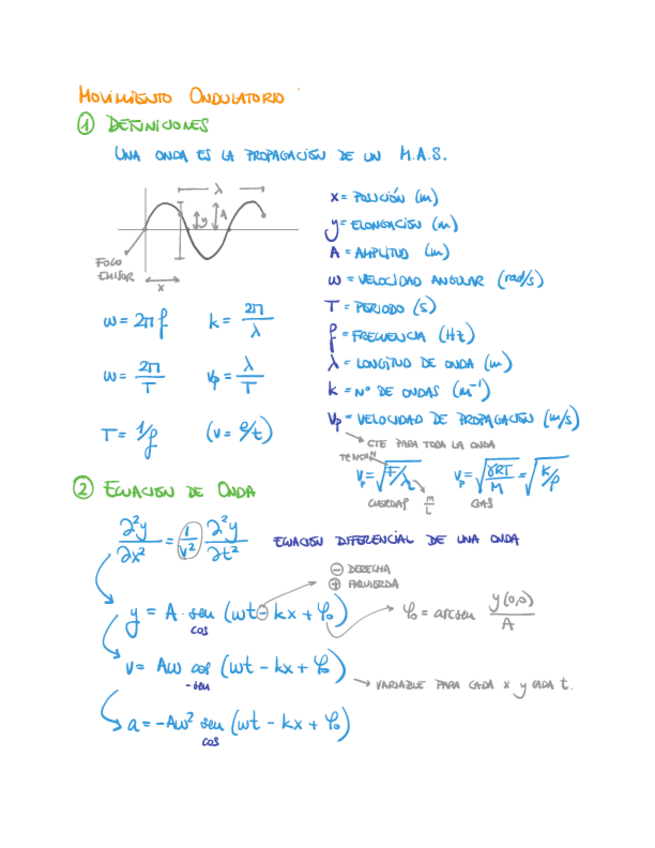 MOVIMIENTO ONDULATORIO
① DEFINICIONES
UNA ONDA ES LA PROPAGACIÓN DE UN M.A.S.
λ
y A
FOCO
EMISOR
x
x = POSICIÓN (m)
y = ELONGACIÓN (m)
A = AMPLITUD (m)
ω = VELOCIDAD ANGULAR (rad/s)
T = PERIODO (s)
f = FRECUENCIA (Hz)
λ = LONGITUD DE ONDA (m)
k = Nº DE ONDAS (m⁻¹)
Vp = VELOCIDAD DE PROPAGACIÓN (m/s)
CTE PARA TODA LA ONDA
ω = 2π f k = 2π/λ
ω = 2π/T Vp = λ/T
T = 1/f (v = e/t)
TENSIÓN
Vp = √(F/λ) Vp = √(γRT/M) = √(K/ρ)
CUERDAS M/L GAS
② ECUACIÓN DE ONDA
∂²y/∂x² = 1/v² ∂²y/∂t² ECUACIÓN DIFERENCIAL DE UNA ONDA
⊖ DERECHA
⊕ IZQUIERDA
y = A · sen (ωt - kx + φ₀) φ₀ = arcsen y(0,0)/A
cos
v = Aω cos (ωt - kx + φ₀)
-sen
VARIABLE PARA CADA x y CADA t.
a = -Aω² sen (ωt - kx + φ₀)
cos